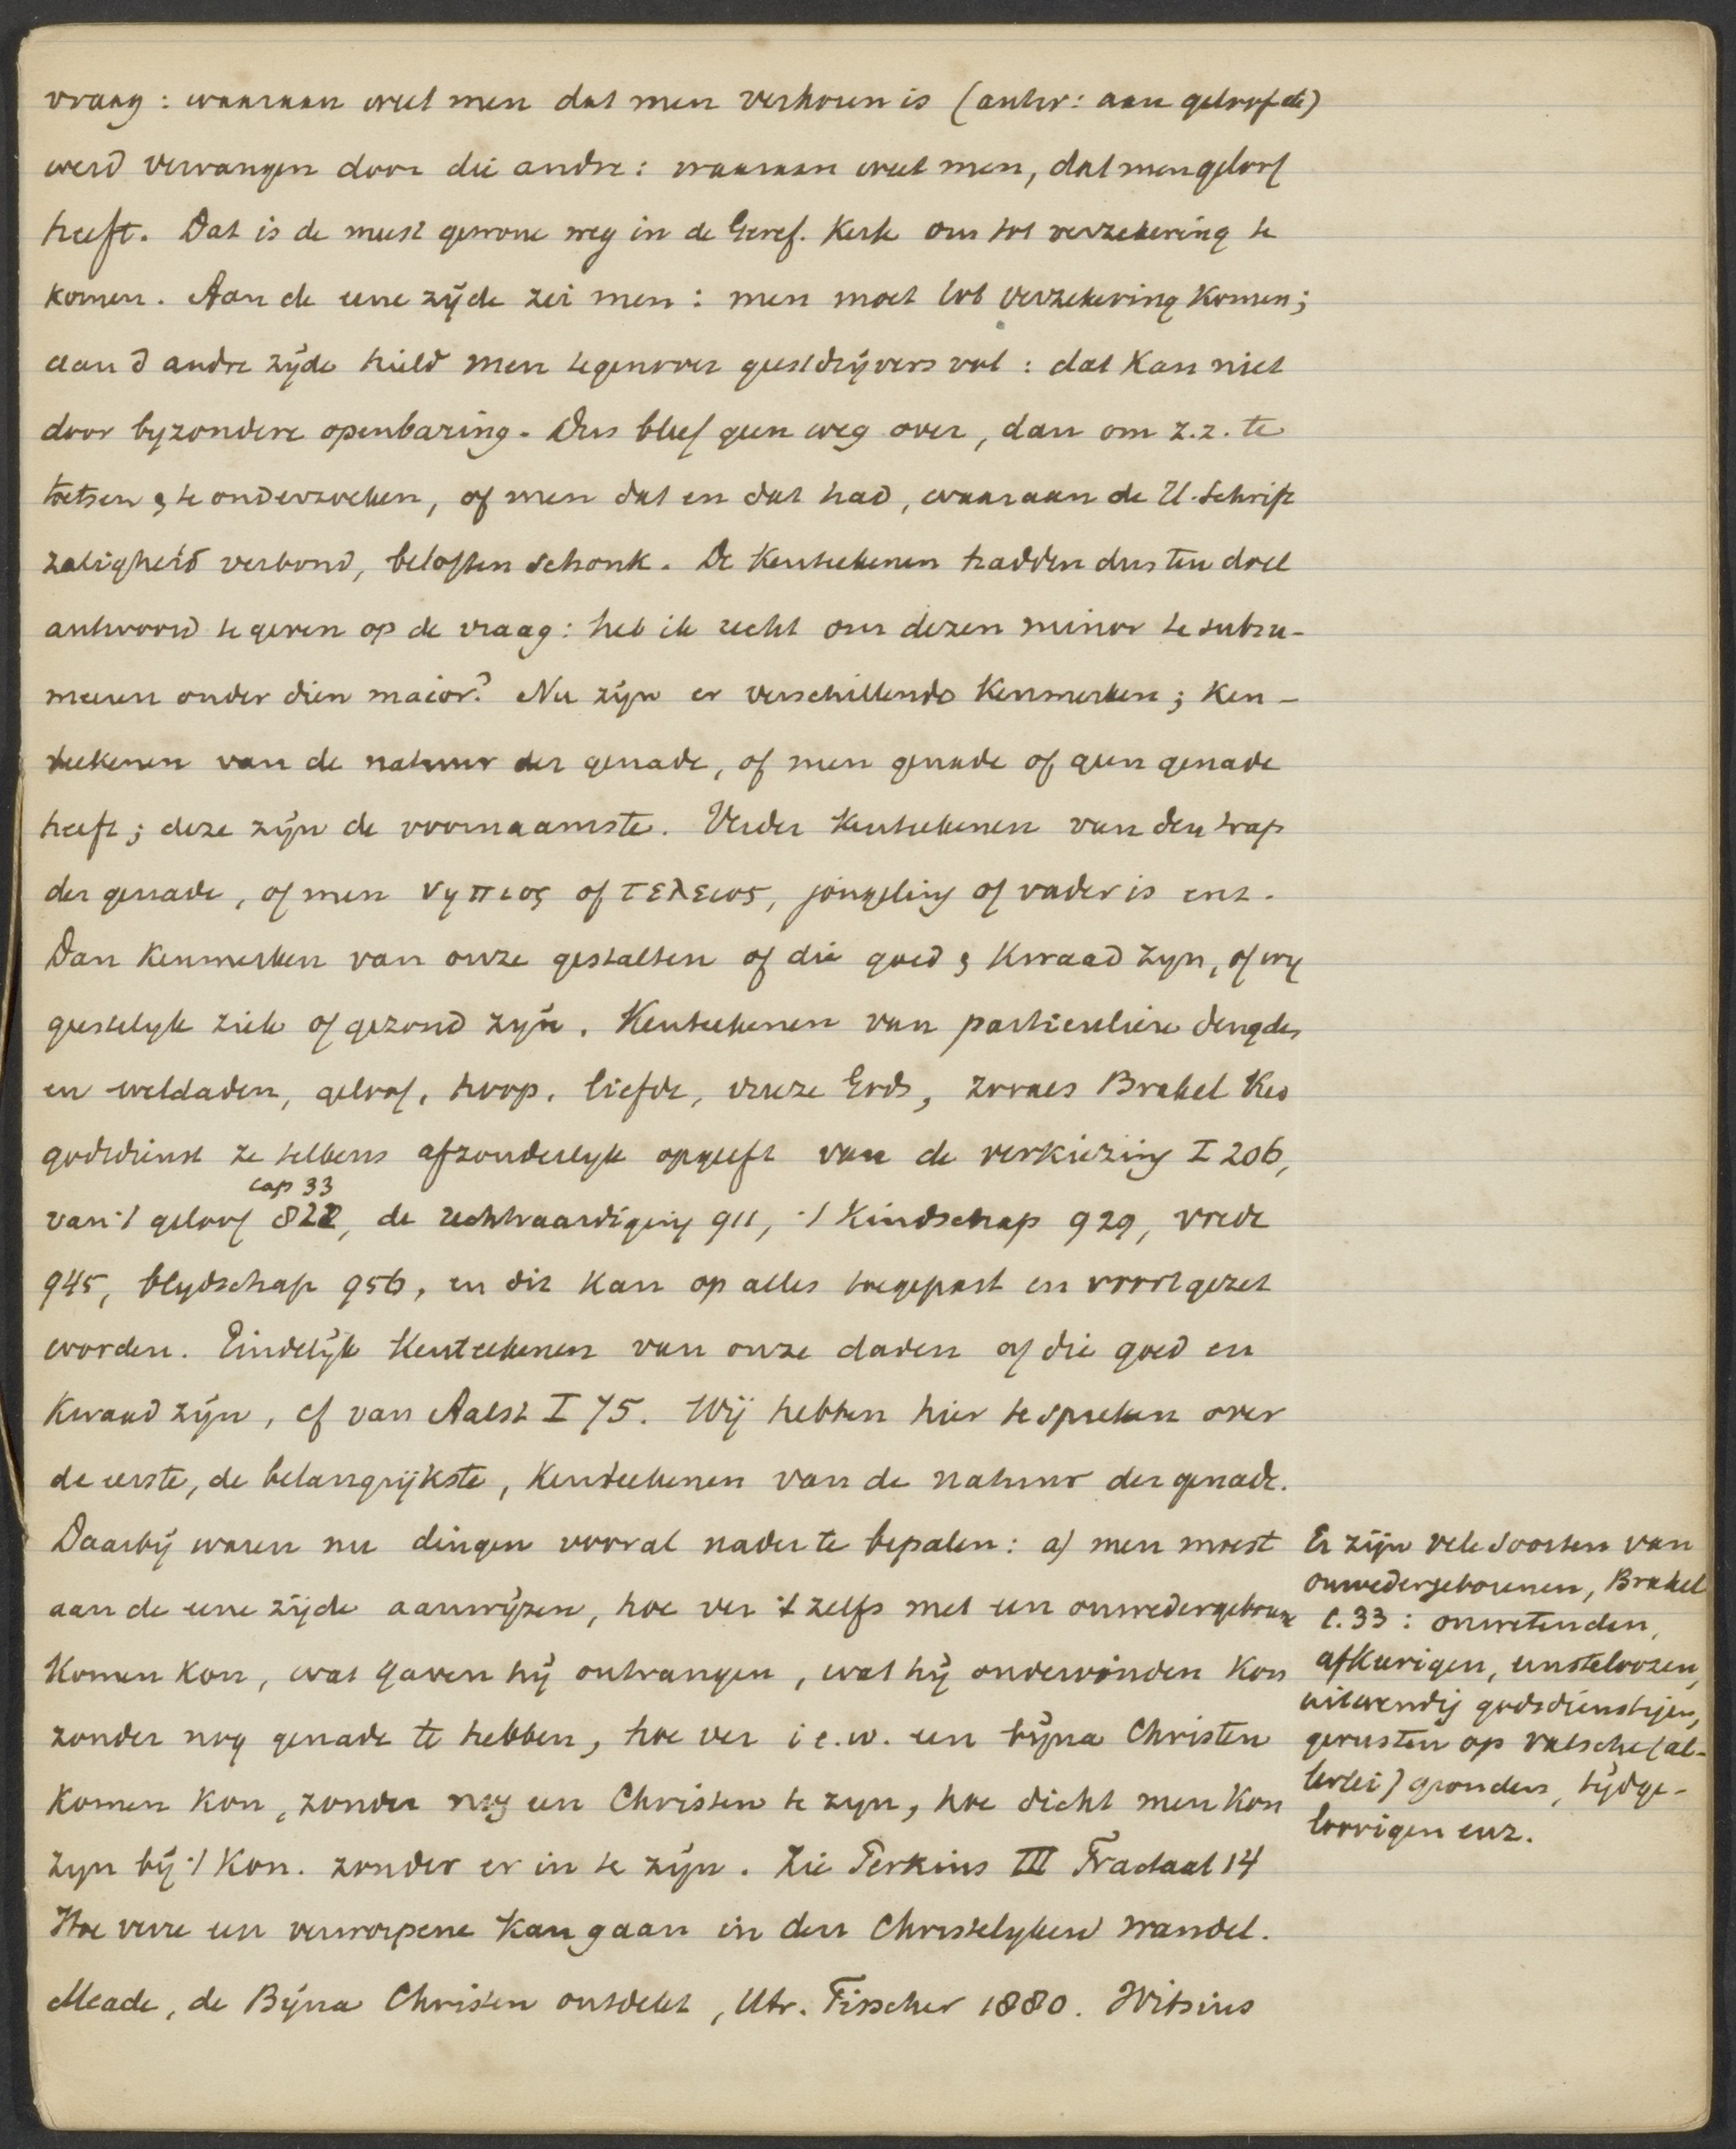 vraag: waaraan weet men dat men verkoren is (antw: aan geloof etc)
werd vervangen door die andre: waaraan weet men, dat men geloof
heeft. Dat is de meest gewone weg in de Geref. Kerk om tot verzekering te
komen. Aan de eene zijde zei men: men moet tot verzekering komen;
aan d andre zijde hield men tegenover geestdrijvers vol: dat kan niet
door byzondere openbaring. Dus bleef geen weg over, dan om z.z. te
toetsen & te onderzoeken, of men dat en dat had, waaraan de H. Schrift
zaligheid verbond, beloften schonk. De Kenteekenen hadden dus ten doel
antwoord te geven op de vraag: heb ik recht om dezen minor te subsu-
meeren onder dien maior? Nu zijn er verschillende Kenmerken; Ken-
teekenen van de natuur der genade, of men genade of geen genade
heeft; deze zijn de voornaamste. Verder Kenteekenen van den trap
der genade, of men νηπιος of τελειος, jongeling of vader is enz.
Dan Kenmerken van onze gestalten of die goed & Kwaad zyn, of wy
geestelyk ziek of gezond zyn. Kenteekenen van particuliere deugden
en weldaden, geloof, hoop, liefde, vreze Gods, zooals Brakel Red
godsdienst ze telkens afzonderlyk opgeeft van de verkiezing I 206,
cap 33
van 't geloof 822, de rechtvaardiging 911, 't Kindschap 929, vrede
945, blydschap 956, en dit kan op alles toegepast en voortgezet
worden. Eindelijk Kenteekenen van onze daden of die goed en
Kwaad zijn, cf van Aalst I 75. Wij hebben hier te spreken over
de eerste, de belangrijkste, Kenteekenen van de natuur der genade.
Daarbij waren nu dingen vooral nader te bepalen: a) men moest
aan de eene zijde aanwijzen, hoe ver 't zelfs met een onwedergeborene
Komen kon, wat gaven hij ontvangen, wat hij ondervinden kon
zonder nog genade te hebben, hoe ver i e.w. een bijna Christen
Komen kon, zonder nog een Christen te zyn, hoe dicht men kon
zyn bij 't Kon. zonder er in te zijn. Zie Perkins III Tractaat 14
Hoe verre een verworpene kan gaan in den Christelyken wandel.
Meade, de Bijna Christen ontdekt, Utr. Fisscher 1880. Witsius
Er zijn vele soorten van
onwedergeborenen, Brakel
c. 33: onwetenden,
afkeerigen, zusteloozen,
uitwendig godsdienstigen,
gerusten op valsche (al-
lerlei) gronden, tijdge-
loovigen enz.